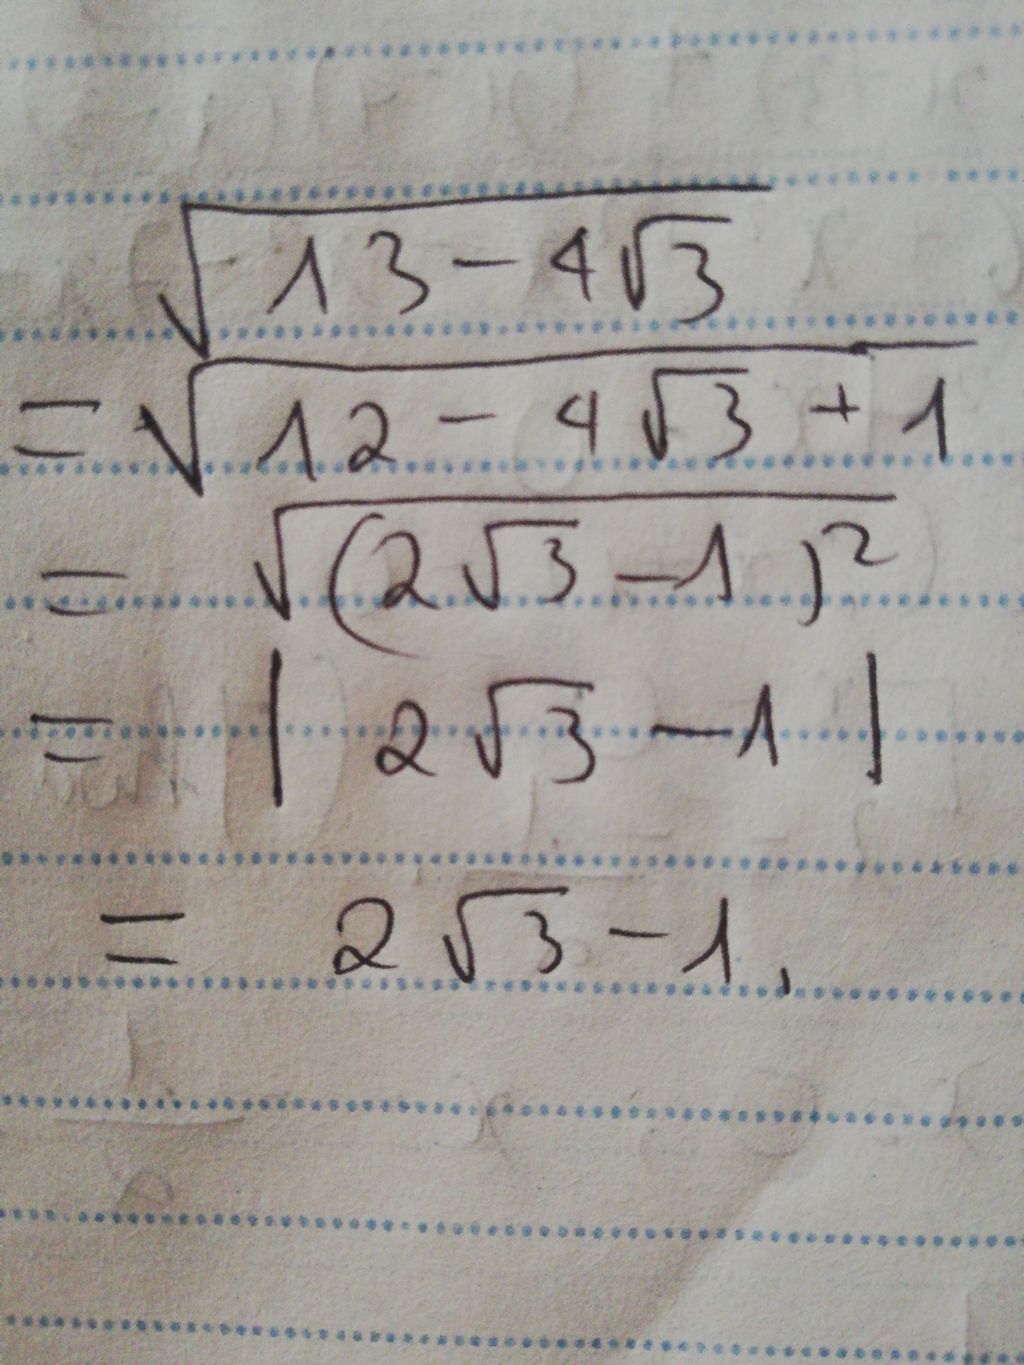 √(13 - 4√3)
= √(12 - 4√3 + 1)
= √((2√3 - 1)²)
= |2√3 - 1|
= 2√3 - 1,